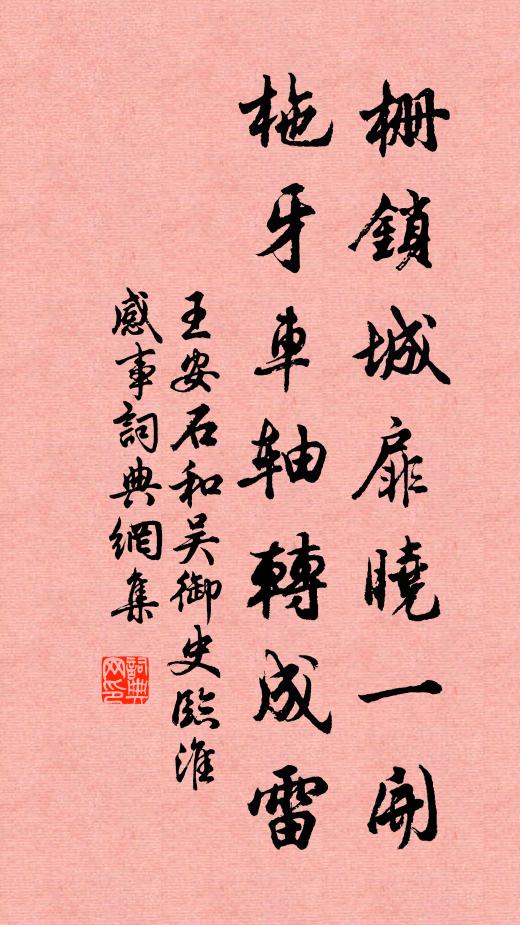 栅鎖城扉曉一開
柂牙車軸轉成雷
王安石和吴御史臨淮
感事詞典網集
詞典
网印